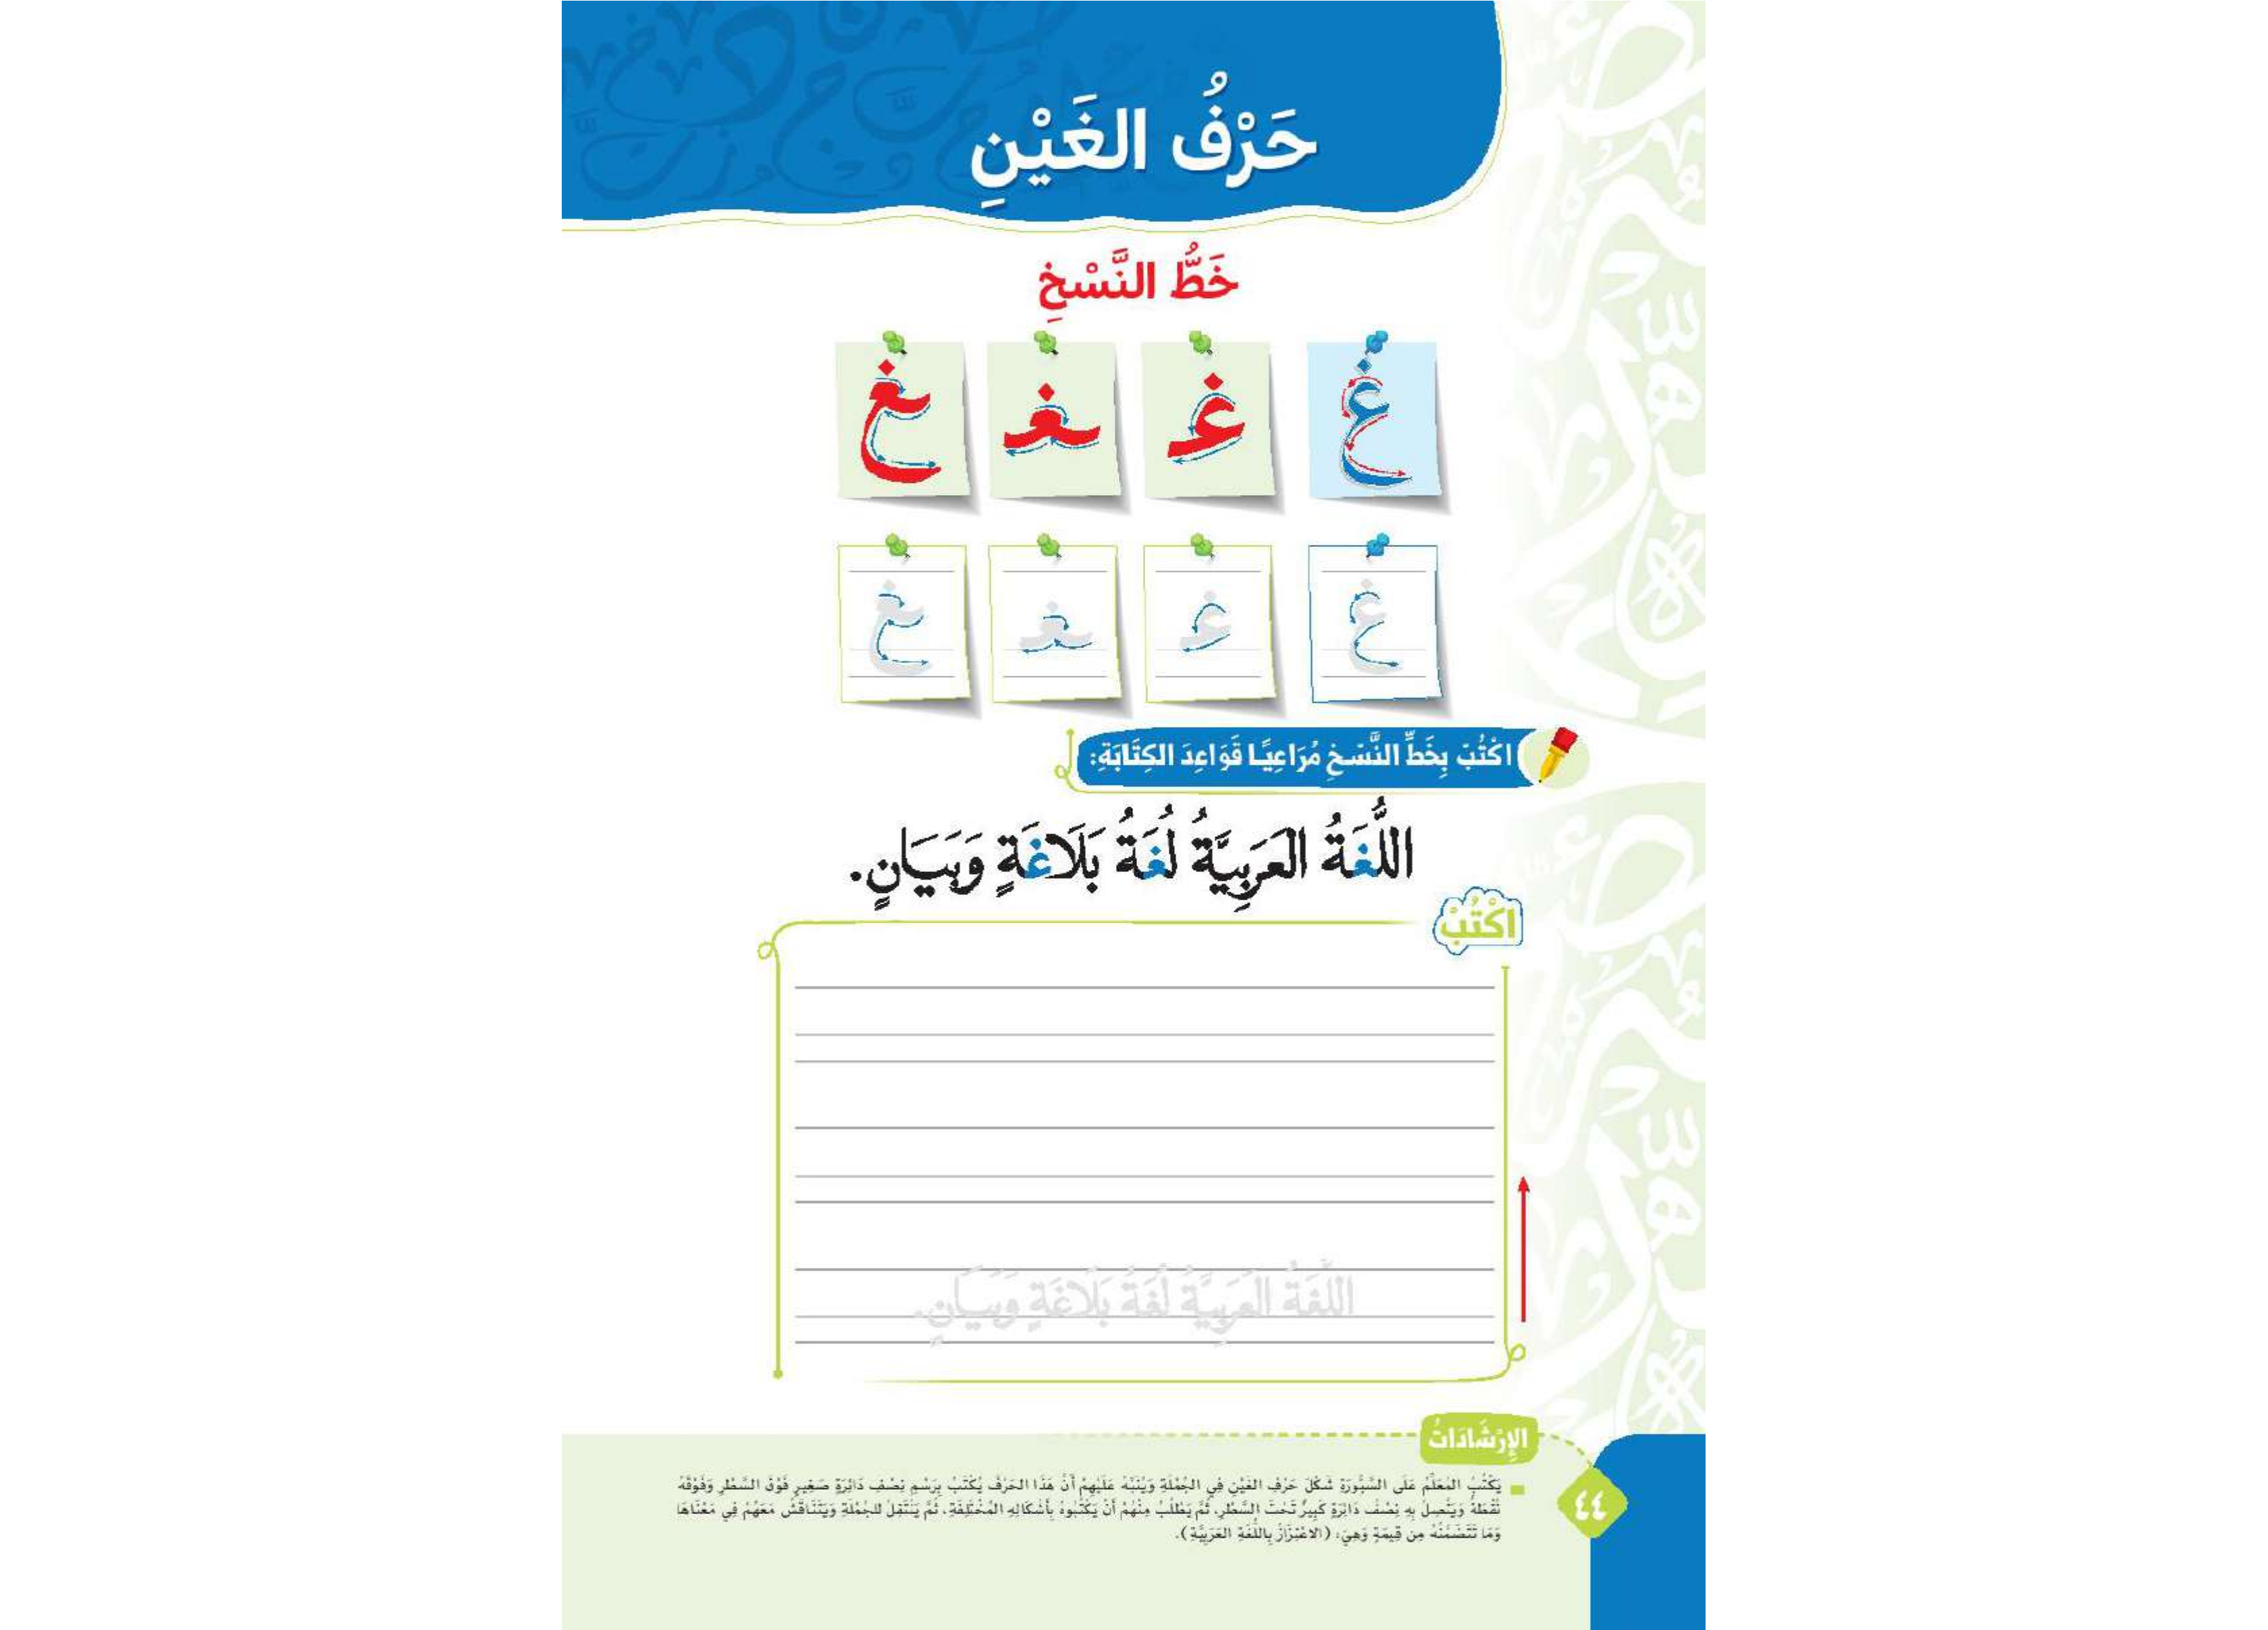 حَرْفُ الغَيْنِ
خَطُّ النَّسْخِ
غ غـ ـغـ ـغ
غ غـ ـغـ ـغ
اكْتُبْ بِخَطِّ النَّسْخِ مُرَاعِيًا قَوَاعِدَ الكِتَابَةِ:
اللُّغَةُ العَرَبِيَّةُ لُغَةُ بَلَاغَةٍ وَبَيَانٍ.
اكْتُبْ
اللُّغَةُ العَرَبِيَّةُ لُغَةُ بَلَاغَةٍ وَبَيَانٍ.
الإِرْشَادَاتُ
يَكْتُبُ المُعَلِّمُ عَلَى السَّبُّورَةِ شَكْلَ حَرْفِ الغَيْنِ فِي الجُمْلَةِ وَيُنَبِّهُ عَلَيْهِمْ أَنَّ هَذَا الحَرْفَ يُكْتَبُ بِرَسْمِ نِصْفِ دَائِرَةٍ صَغِيرٍ فَوْقَ السَّطْرِ وَفَوْقَهُ
نُقْطَةٌ وَيَتَّصِلُ بِهِ نِصْفُ دَائِرَةٍ كَبِيرٌ تَحْتَ السَّطْرِ، ثُمَّ يَطْلُبُ مِنْهُمْ أَنْ يَكْتُبُوهُ بِأَشْكَالِهِ المُخْتَلِفَةِ، ثُمَّ يَنْتَقِلُ للجُمْلَةِ وَيَتَنَاقَشُ مَعَهُمْ فِي مَعْنَاهَا
وَمَا تَتَضَمَّنُهُ مِن قِيمَةٍ وَهِيَ: (الاعْتِزَازُ بِاللُّغَةِ العَرَبِيَّةِ).
٤٤